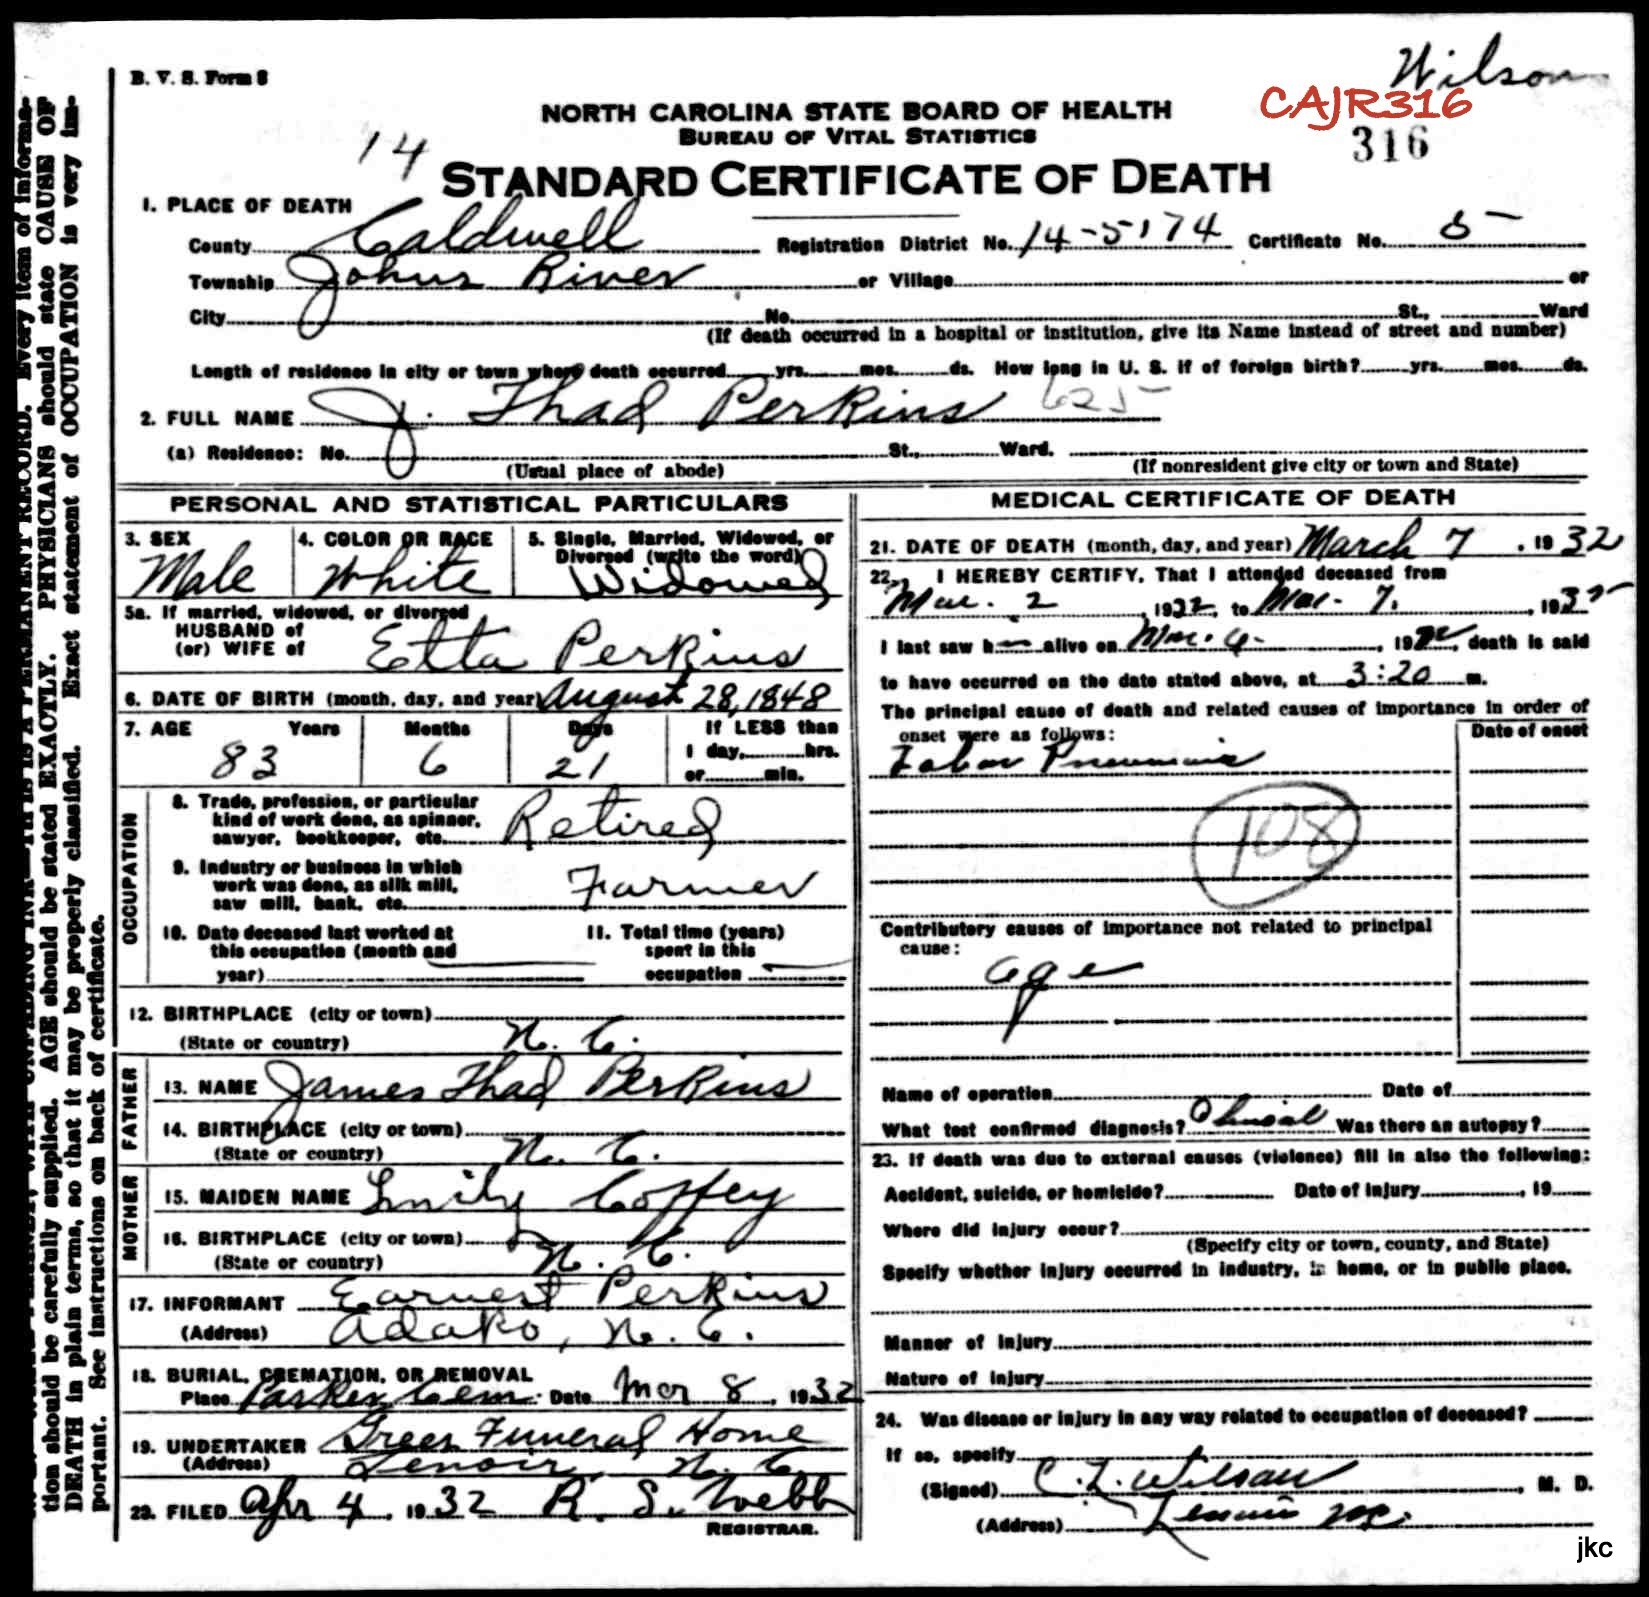 Wilson
B. V. S. Form 8
CAJR316
NORTH CAROLINA STATE BOARD OF HEALTH
316
BUREAU OF VITAL STATISTICS
14
STANDARD CERTIFICATE OF DEATH
1. PLACE OF DEATH
County Caldwell Registration District No. 14-5174 Certificate No. 5
Township Johns River or Village or
City No. St., Ward
(If death occurred in a hospital or institution, give its Name instead of street and number)
Length of residence in city or town where death occurred yrs. mos. ds. How long in U. S. if of foreign birth? yrs. mos. ds.
2. FULL NAME J. Thad Perkins 625
(a) Residence: No. St., Ward.
(Usual place of abode) (If nonresident give city or town and State)
PERSONAL AND STATISTICAL PARTICULARS
3. SEX 4. COLOR OR RACE 5. Single, Married, Widowed, or
Divorced (write the word)
Male White Widowed
5a. If married, widowed, or divorced
HUSBAND of
(or) WIFE of Etta Perkins
6. DATE OF BIRTH (month, day, and year) August 28, 1848
7. AGE Years Months Days If LESS than
1 day, hrs.
83 6 21 or min.
OCCUPATION
8. Trade, profession, or particular
kind of work done, as spinner,
sawyer, bookkeeper, etc. Retired
9. Industry or business in which
work was done, as silk mill,
saw mill, bank, etc. Farmer
10. Date deceased last worked at 11. Total time (years)
this occupation (month and spent in this
year) occupation
12. BIRTHPLACE (city or town)
(State or country) N. C.
FATHER
13. NAME James Thad Perkins
14. BIRTHPLACE (city or town)
(State or country) N. C.
MOTHER
15. MAIDEN NAME Emily Coffey
16. BIRTHPLACE (city or town)
(State or country) N. C.
17. INFORMANT Earnest Perkins
(Address) Adako, N. C.
18. BURIAL, CREMATION, OR REMOVAL
Place Parker Cem. Date Mar 8, 1932
19. UNDERTAKER Greer Funeral Home
(Address) Lenoir, N. C.
20. FILED Apr 4, 1932 R. S. Webb
REGISTRAR.
MEDICAL CERTIFICATE OF DEATH
21. DATE OF DEATH (month, day, and year) March 7, 1932
22. I HEREBY CERTIFY, That I attended deceased from
Mar. 2, 1932, to Mar. 7, 1932
I last saw him alive on Mar. 6, 1932, death is said
to have occurred on the date stated above, at 3:20 m.
The principal cause of death and related causes of importance in order of
onset were as follows: Date of onset
Lobar Pneumonia
108
Contributory causes of importance not related to principal
cause:
age
Name of operation Date of
What test confirmed diagnosis? Clinical Was there an autopsy?
23. If death was due to external causes (violence) fill in also the following:
Accident, suicide, or homicide? Date of injury , 19
Where did injury occur?
(Specify city or town, county, and State)
Specify whether injury occurred in industry, in home, or in public place.
Manner of injury
Nature of injury
24. Was disease or injury in any way related to occupation of deceased?
If so, specify
(Signed) C. L. Wilson, M. D.
(Address) Lenoir NC.
jkc
tion should be carefully supplied. AGE should be stated EXACTLY. PHYSICIANS should state CAUSE OF
DEATH in plain terms, so that it may be properly classified. Exact statement of OCCUPATION is very im-
portant. See instructions on back of certificate.